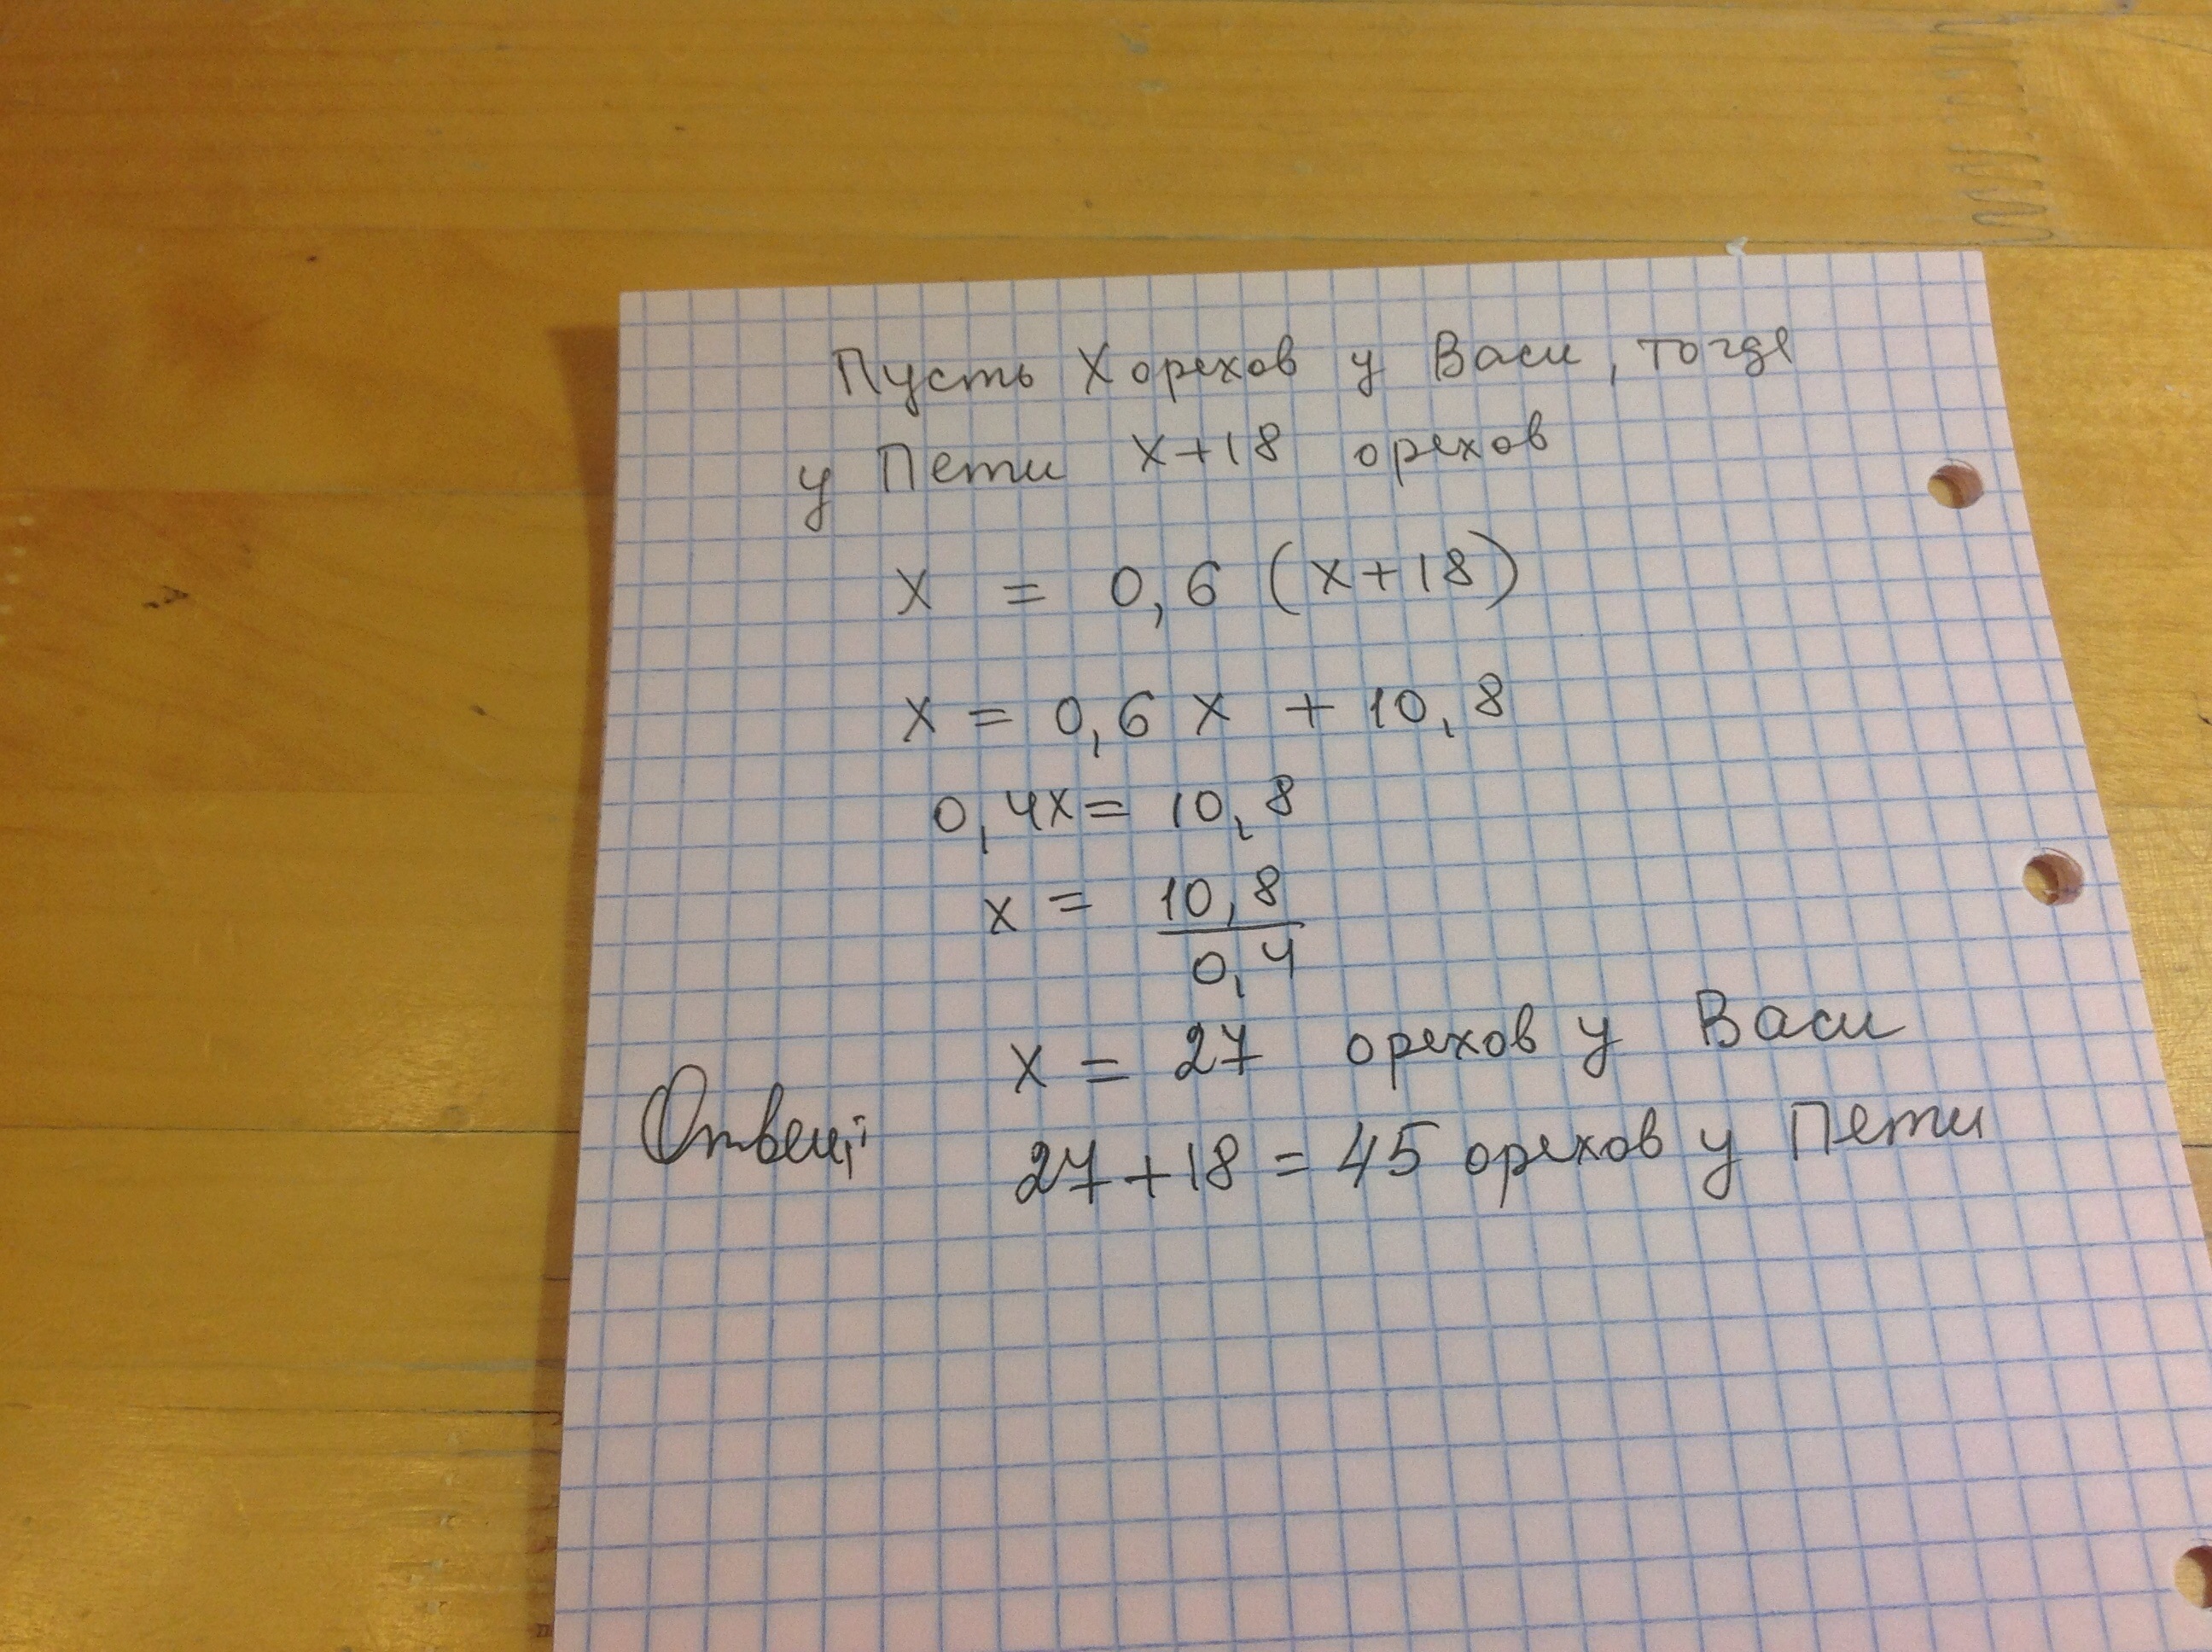 Пусть X орехов у Васи, тогда
у Пети x+18 орехов
x = 0,6 (x+18)
x = 0,6 x + 10,8
0,4x = 10,8
x = 10,8
0,4
x = 27 орехов у Васи
Ответ:
27+18 = 45 орехов у Пети